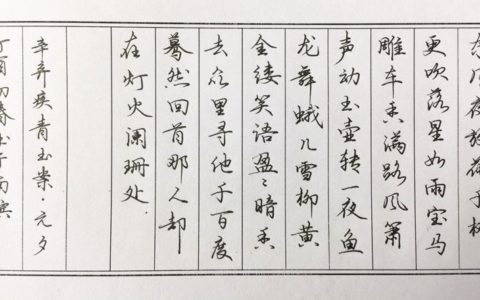 东风夜放花千树
更吹落星如雨宝马
雕车香满路凤箫
声动玉壶转一夜鱼
龙舞蛾儿雪柳黄
金缕笑语盈々暗香
去众里寻他千百度
蓦然回首那人却
在灯火阑珊处.
辛弃疾青玉案·元夕
丁酉初春书于南滨